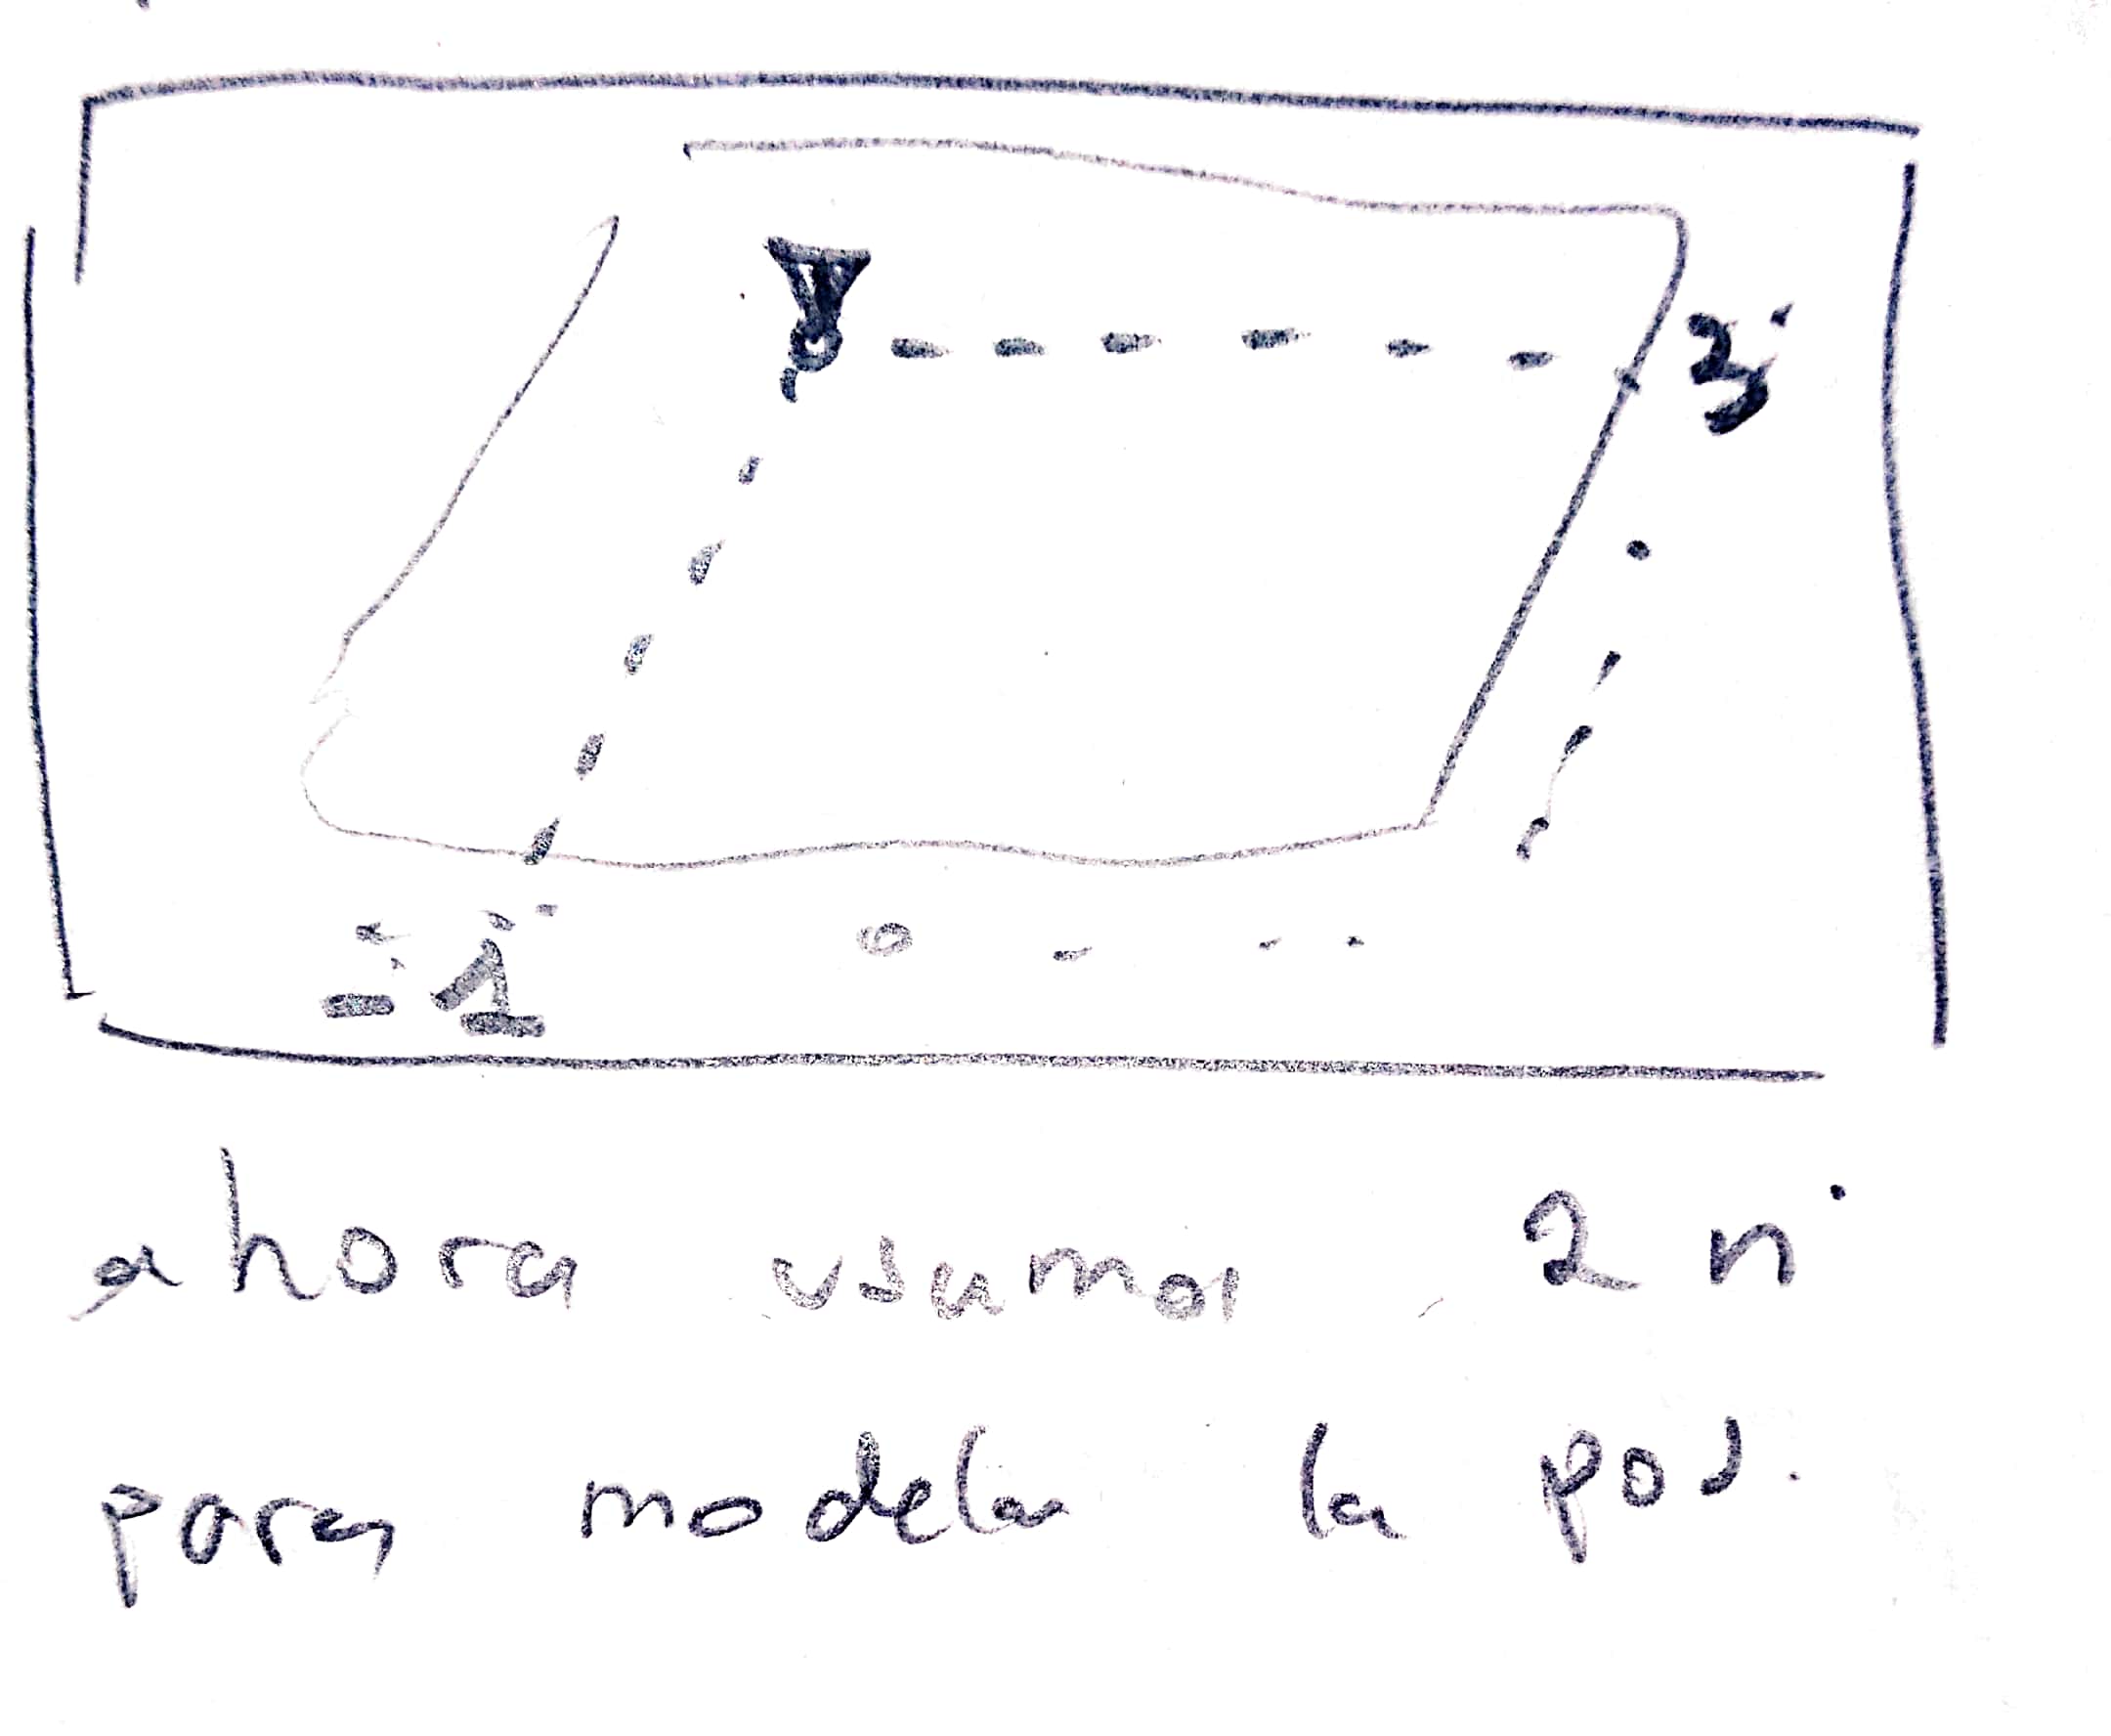 3
-1
ahora usamos 2 n°
para modelar la pos.